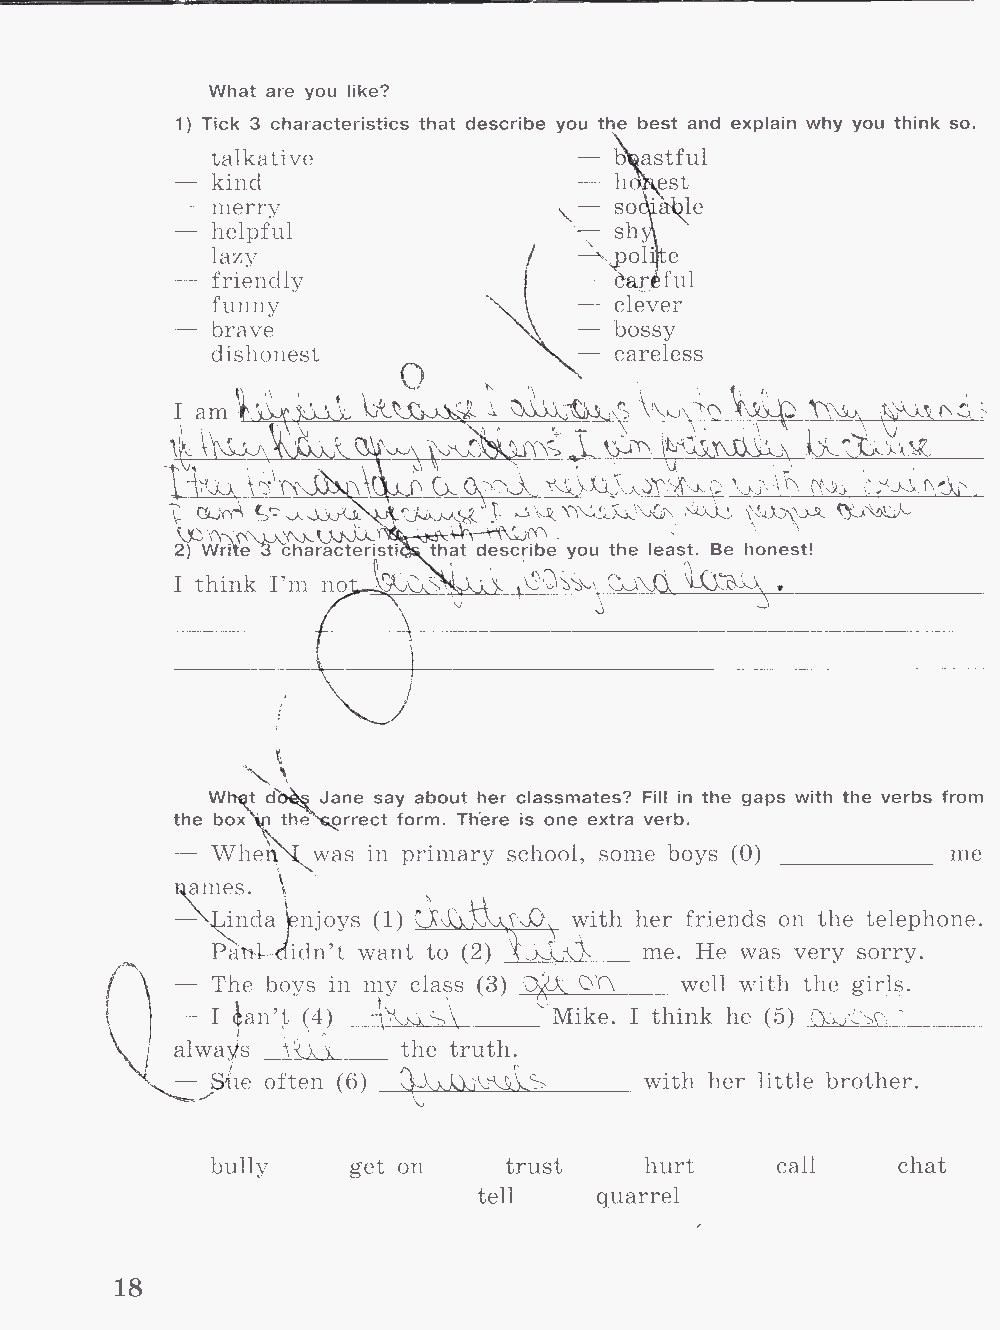 What are you like?
1) Tick 3 characteristics that describe you the best and explain why you think so.
talkative
— kind
- merry
— helpful
lazy
— friendly
funny
— brave
dishonest
— boastful
— honest
— sociable
— shy
— polite
- careful
— clever
— bossy
— careless
I am helpful because I always try to help my friends
if they have any problems. I am friendly because
I try to maintain a good relationship with my friends.
I am sociable because I like meeting new people and
communicating with them.
2) Write 3 characteristics that describe you the least. Be honest!
I think I'm not boastful, bossy and lazy.
What does Jane say about her classmates? Fill in the gaps with the verbs from
the box in the correct form. There is one extra verb.
— When I was in primary school, some boys (0) ________ me
names.
— Linda enjoys (1) chatting with her friends on the telephone.
Paul didn't want to (2) hurt me. He was very sorry.
— The boys in my class (3) get on well with the girls.
- I can't (4) trust Mike. I think he (5)
always tell the truth.
— Sue often (6) quarrels with her little brother.
bully get on trust hurt call chat
tell quarrel
18